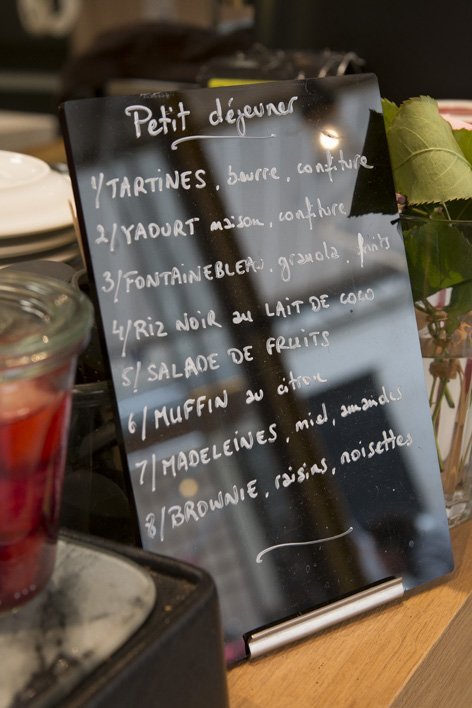 Petit déjeuner
1/ TARTINES, beurre, confiture
2/ YAOURT maison, confiture
3/ FONTAINEBLEAU, granola, fruits
4/ RIZ NOIR au LAIT DE COCO
5/ SALADE DE FRUITS
6/ MUFFIN au citron
7/ MADELEINES, miel, amandes
8/ BROWNIE, raisins, noisettes